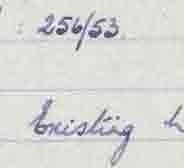 : 256/53
Existing h